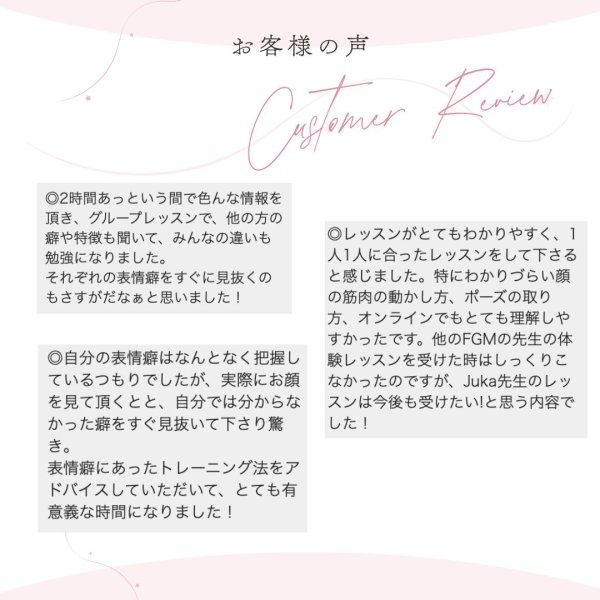 お客様の声
Customer Review
◎2時間あっという間で色んな情報を
頂き、グループレッスンで、他の方の
癖や特徴も聞いて、みんなの違いも
勉強になりました。
それぞれの表情癖をすぐに見抜くの
もさすがだなぁと思いました！
◎レッスンがとてもわかりやすく、1
人1人に合ったレッスンをして下さる
と感じました。特にわかりづらい顔
の筋肉の動かし方、ポーズの取り
方、オンラインでもとても理解しや
すかったです。他のFGMの先生の体
験レッスンを受けた時はしっくりこ
なかったのですが、Juka先生のレッ
スンは今後も受けたい!と思う内容で
した！
◎自分の表情癖はなんとなく把握し
ているつもりでしたが、実際にお顔
を見て頂くとと、自分では分からな
かった癖をすぐ見抜いて下さり驚
き。
表情癖にあったトレーニング法をア
ドバイスしていただいて、とても有
意義な時間になりました！